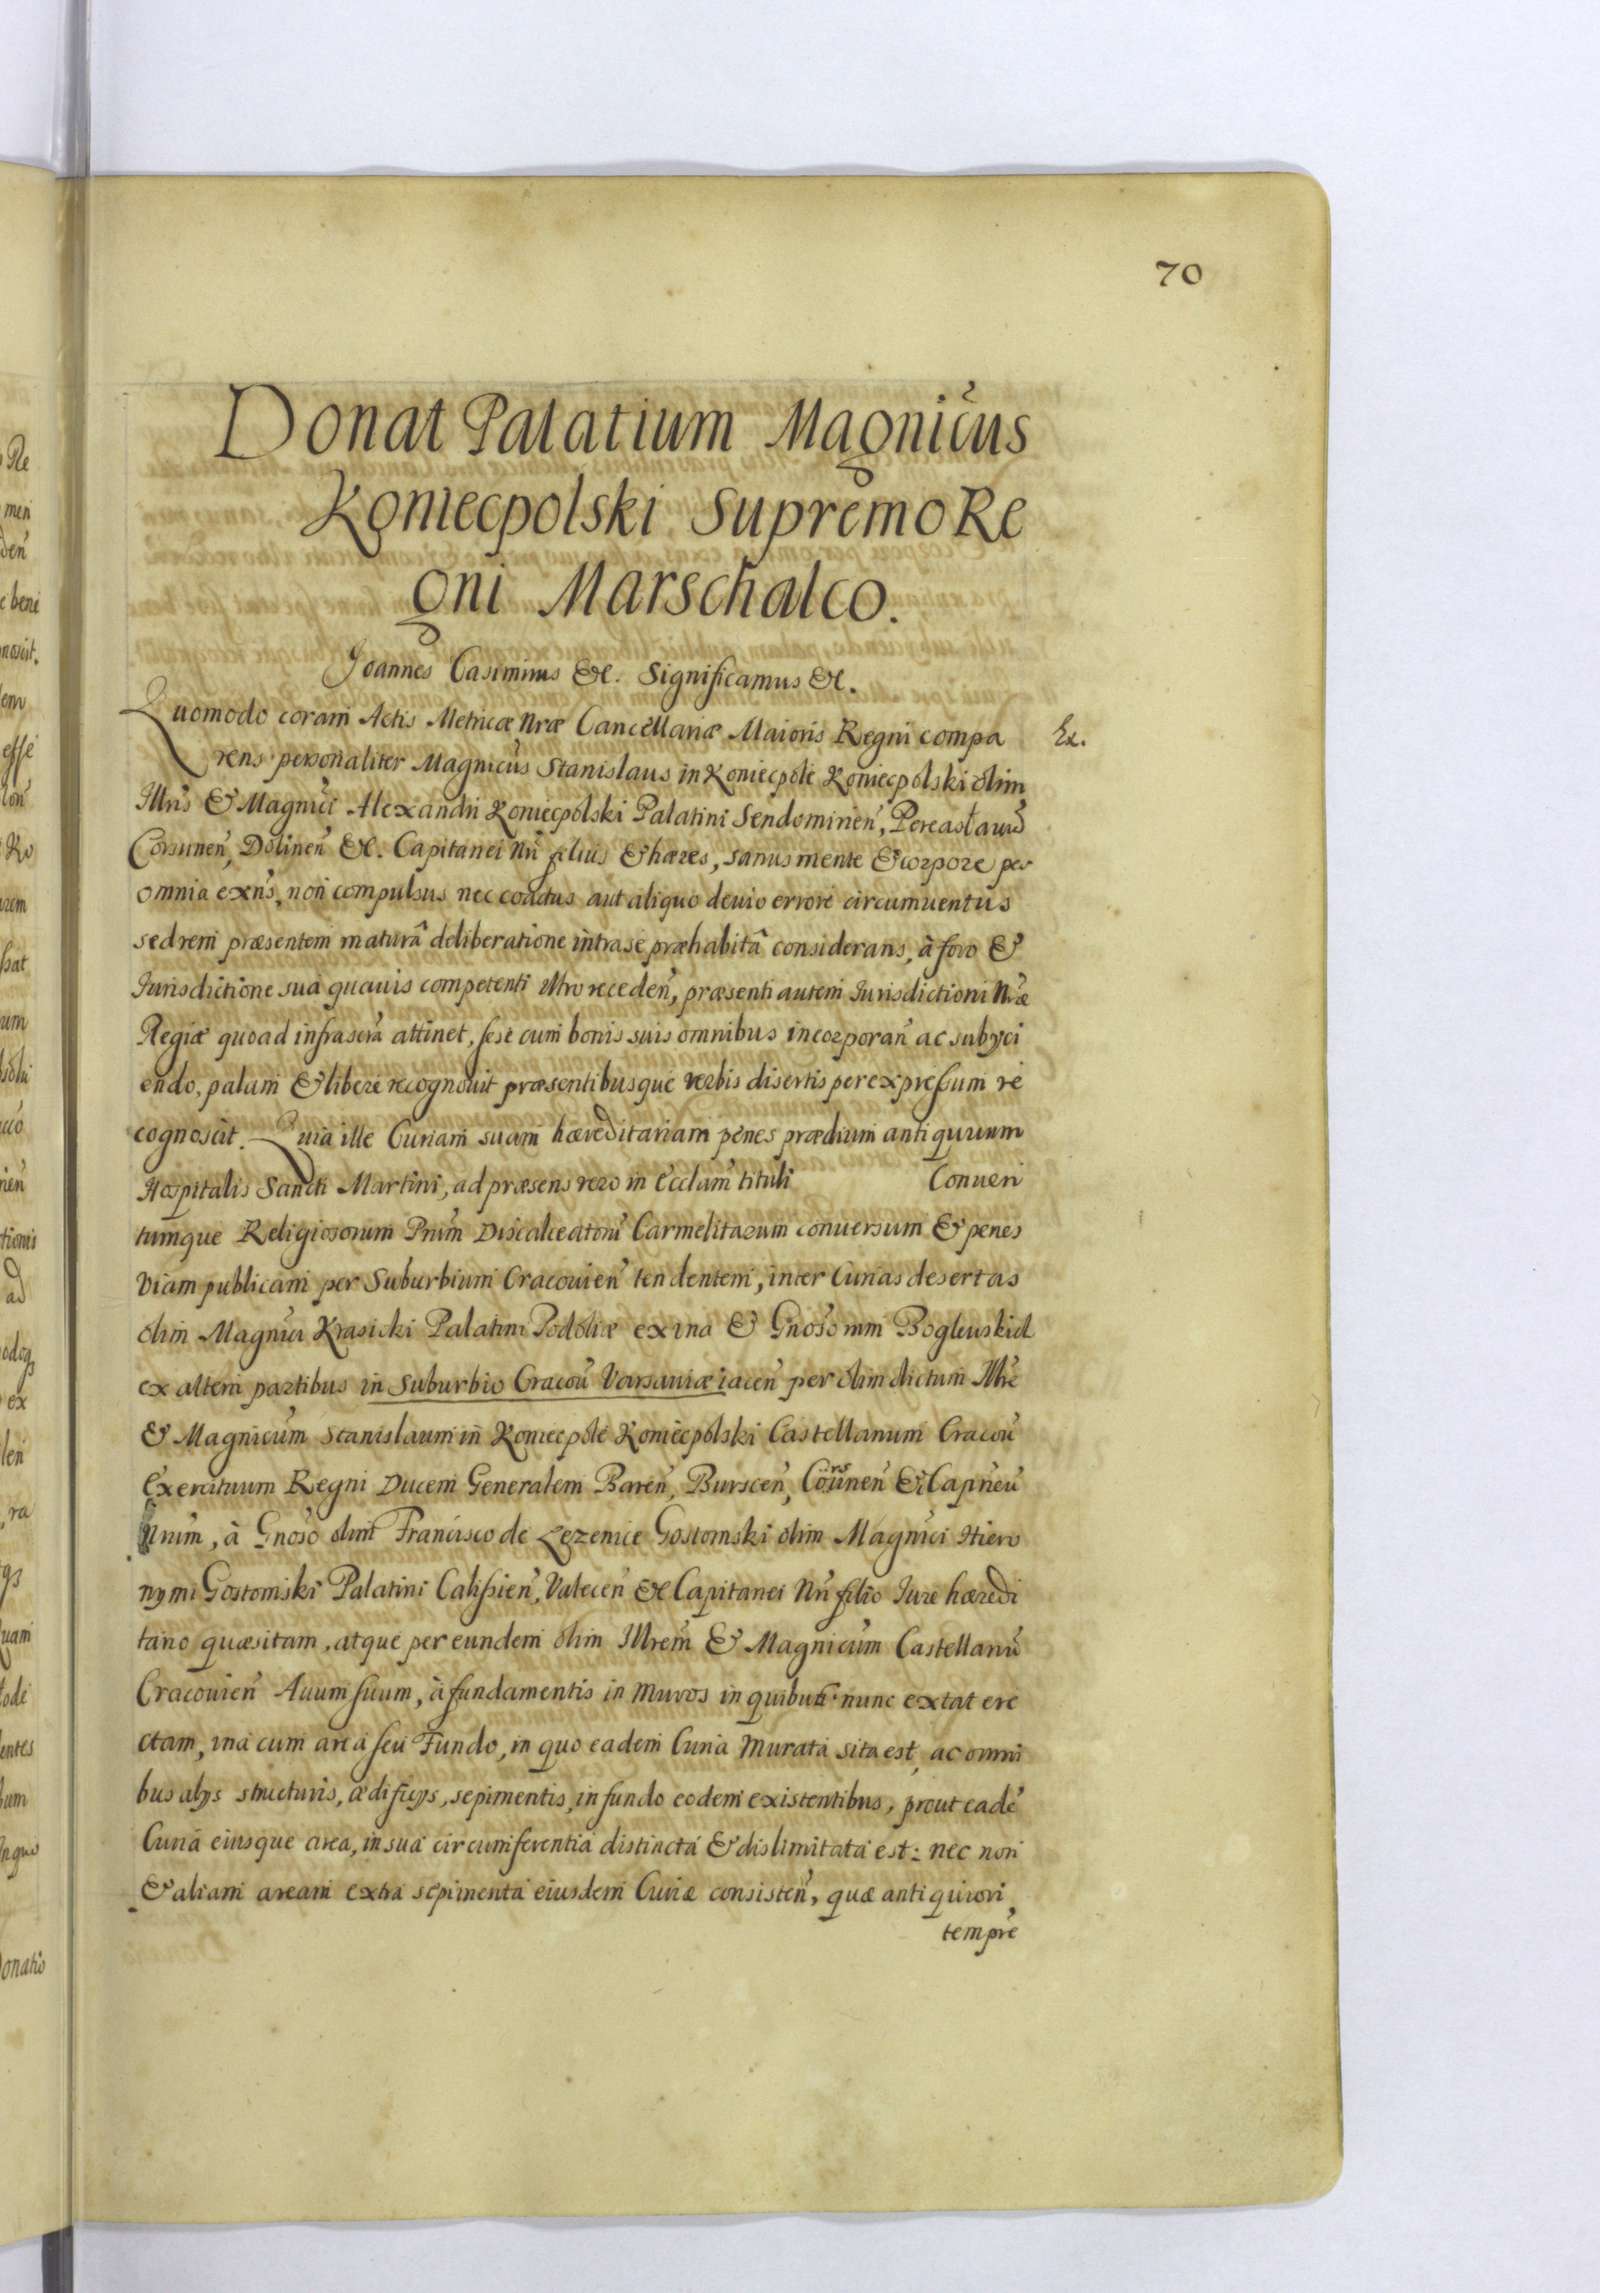 70
Donat Palatium Magnicus
Koniecpolski Supremo Re
gni Marschalco.
Joannes Casimirus &c. Significamus &c.
Quomodo coram Actis Metricæ Nræ Cancellariæ Maioris Regni compa
Ex.
rens personaliter Magnicus Stanislaus in Koniecpole Koniecpolski olim
Illris & Magnici Alexandri Koniecpolski Palatini Sendomirien, Pereasłauien
Corsunen, Dolinen &c. Capitanei Nri filius & hæres, sanus mente & corpore per
omnia exns, non compulsus nec coactus aut aliquo deuio errore circumuentus
sed rem præsentem maturâ deliberatione intra se præhabitâ considerans, à foro &
Iurisdictione sua quauis competenti Mro receden, præsenti autem Iurisdictioni Nræ
Regiæ quoad infrascra attinet, sese cum bonis suis omnibus incorporan ac subyci
endo, palam & libere recognouit præsentibusque verbis disertis per expressum re
cognoscit. Quia ille Curiam suam hæreditariam penes prædium antiquum
Hospitalis Sancti Martini, ad præsens vero in Ecclam tituli Conuen
tumque Religiosorum Prum Discalceatoru Carmelitarum conuersum & penes
viam publicam per Suburbium Cracouien tendentem, inter Curias desertas
olim Magnici Krasicki Palatini Podoliæ ex una & Gnosorum Bogleuskich
ex altera partibus in Suburbio Cracou Varsauiæ iacen per olim dictum Illre
& Magnicum Stanislaum in Koniecpole Koniecpolski Castellanum Cracou
Exercituum Regni Ducem Generalem Baren, Burscen, Corsunen &c Capneu
Nrum, à Gnoso olim Francisco de Lezenice Gostomski olim Magnici Hiero
nymi Gostomski Palatini Calissien, Valecen &c Capitanei Nri filio Iure hæredi
tario quæsitam, atque per eundem olim Illrem & Magnicum Castellanu
Cracouien Auum suum, à fundamentis in Muros in quibus nunc extat ere
ctam, una cum area seu Fundo, in quo eadem Curia Murata sita est, ac omni
bus alys structuris, ædificys, sepimentis, in fundo eodem existentibus, prout eade
Curia eiusque area, in sua circumferentia distincta & dislimitata est: nec non
& aliam aream extra sepimenta eiusdem Curiæ consisten, quæ antiquiori
tempre